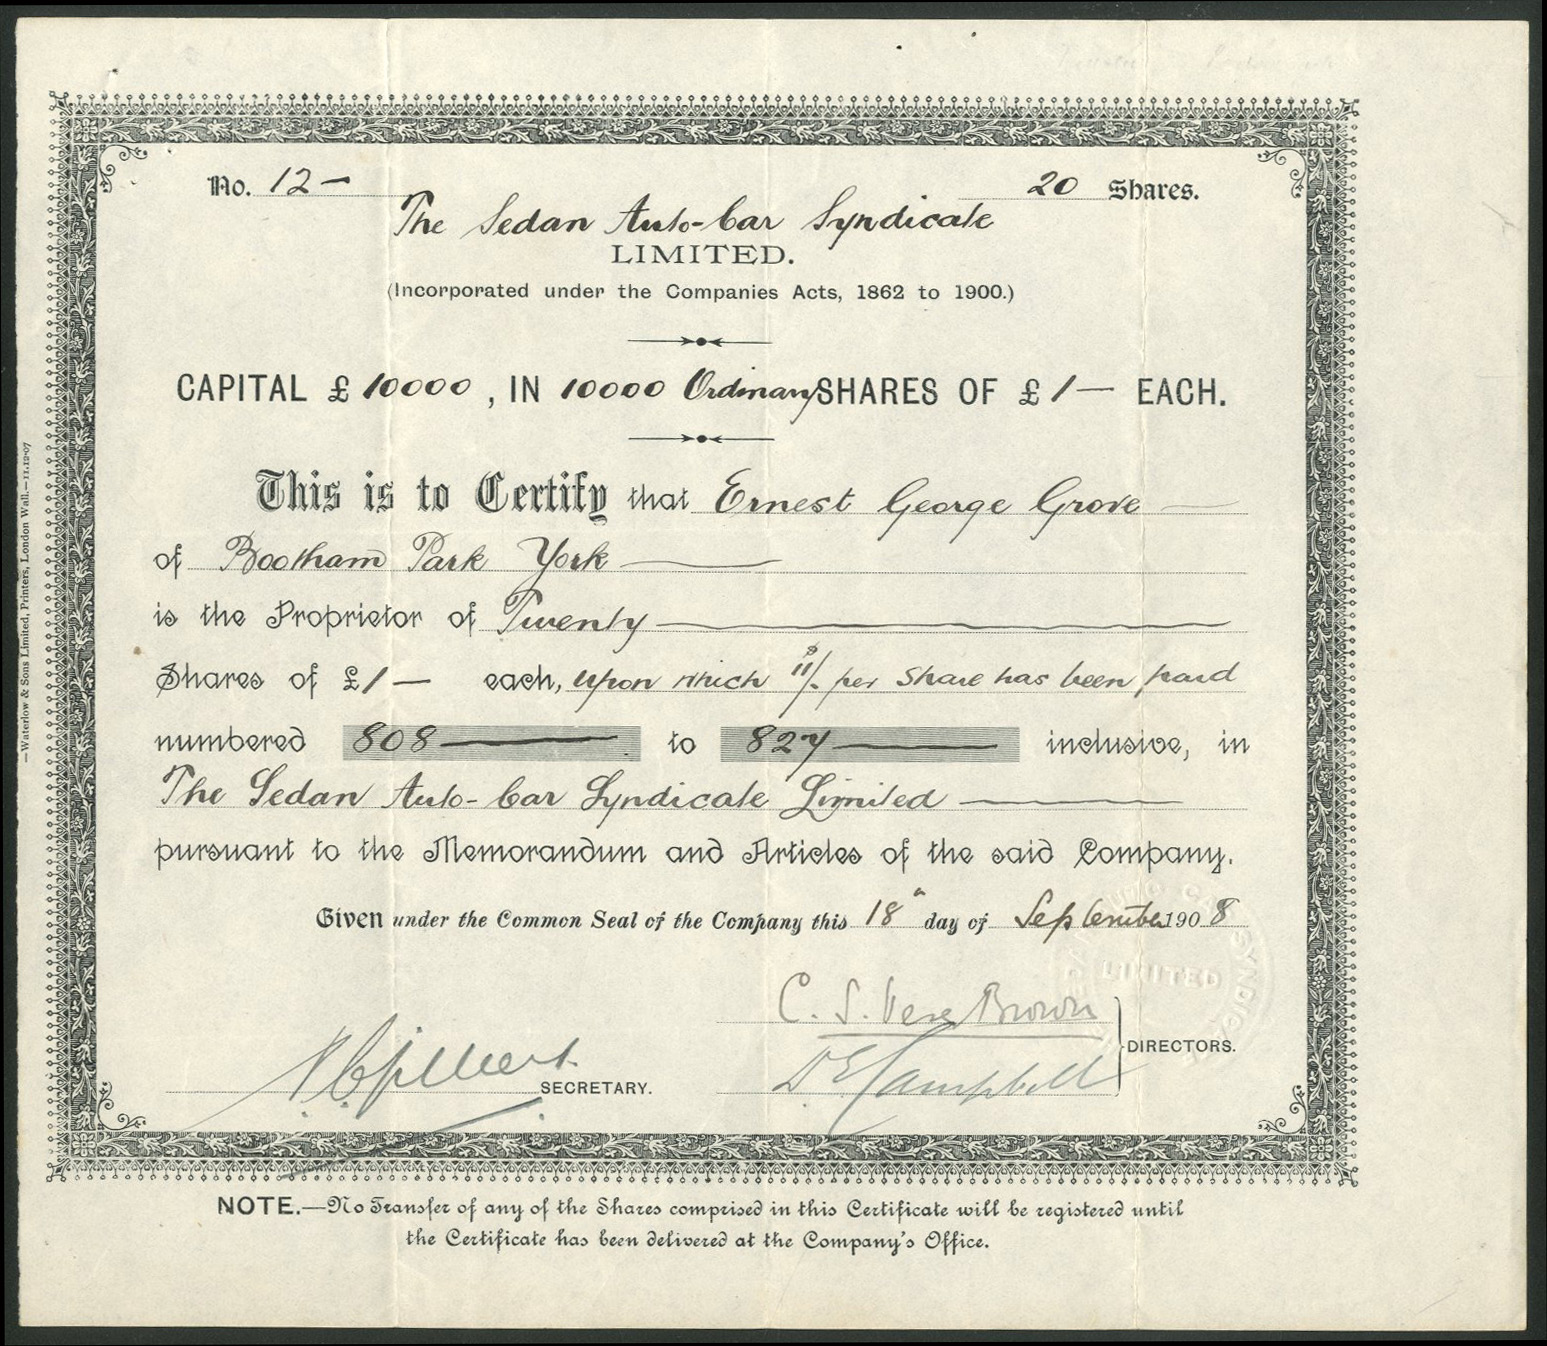 No. 12— 20 Shares.
The Sedan Auto-Car Syndicate
LIMITED.
(Incorporated under the Companies Acts, 1862 to 1900.)
CAPITAL £ 10000, IN 10000 Ordinary SHARES OF £ 1— EACH.
This is to Certify that Ernest George Grove —
of Bootham Park York —
is the Proprietor of Twenty —
Shares of £1— each, upon which /- per share has been paid
numbered 808 — to 827 — inclusive, in
The Sedan Auto-Car Syndicate Limited —
pursuant to the Memorandum and Articles of the said Company.
Given under the Common Seal of the Company this 18 day of September 1908
LIMITED
C. S. Vere Brown
D E Campbell
DIRECTORS.
SECRETARY.
NOTE.—No Transfer of any of the Shares comprised in this Certificate will be registered until
the Certificate has been delivered at the Company's Office.
—Waterlow & Sons Limited, Printers, London Wall.—11.12-07